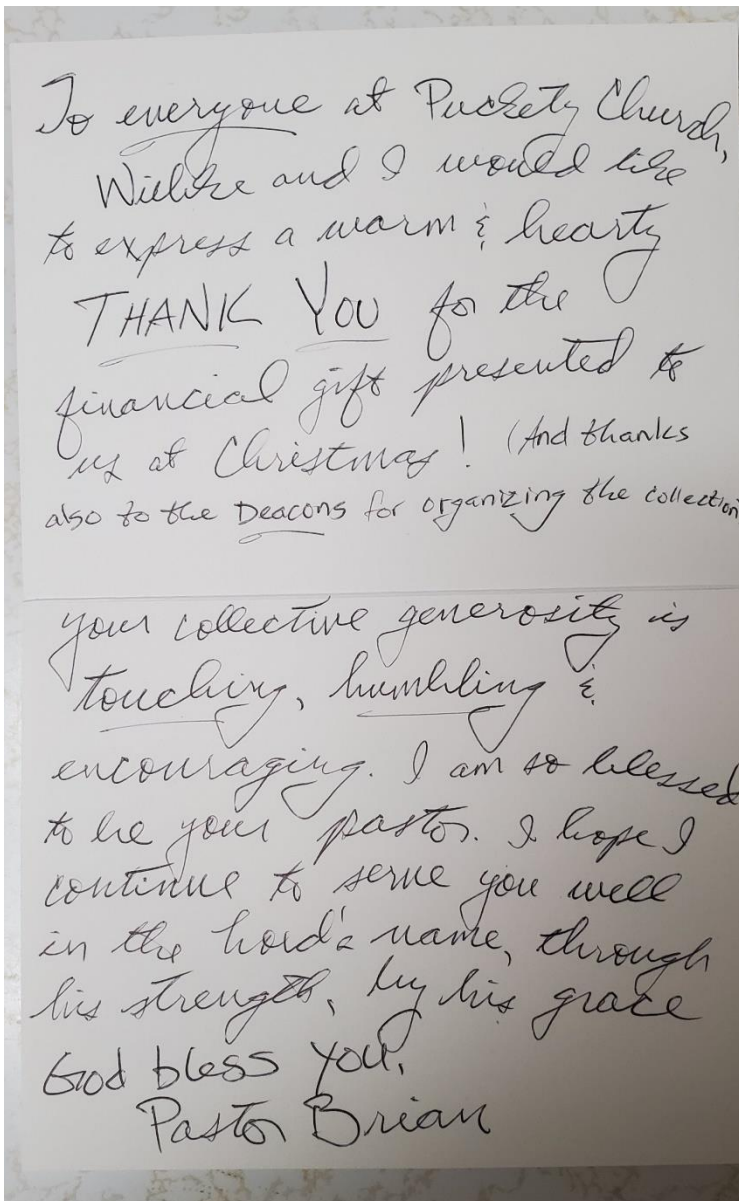 To everyone at Puckety Church,
Wielke and I would like
to express a warm & hearty
THANK YOU for the
financial gift presented to
us at Christmas! (And thanks
also to the Deacons for organizing the collection
your collective generosity is
touching, humbling &
encouraging. I am so blessed
to be your pastor. I hope I
continue to serve you well
in the Lord's name, through
his strength, by his grace
God bless you,
Pastor Brian